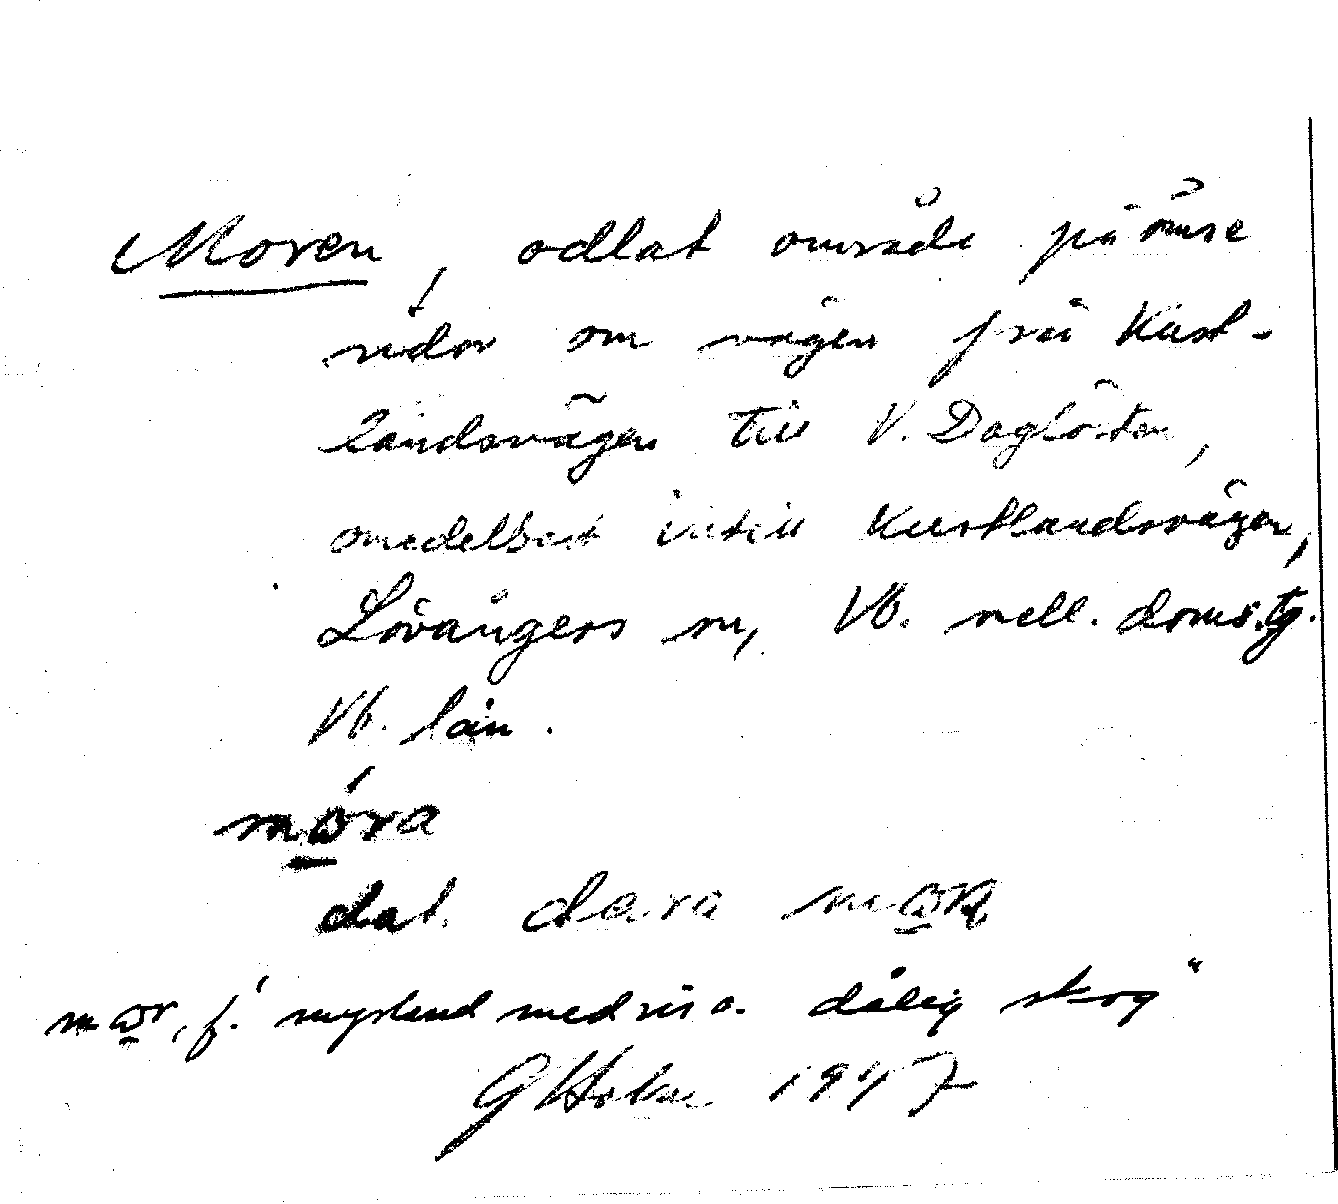 Moren, odlat område på ömse
sidor om vägen från Kust-
landsvägen till V. Daglösten,
omedelbart intill Kustlandsvägen,
Lövångers sn, Vb. nell. doms.tg.
Vb. län.
mó̱ra
dat. da ra
f. "myrland med risa. dålig skog"
G Holm 1947